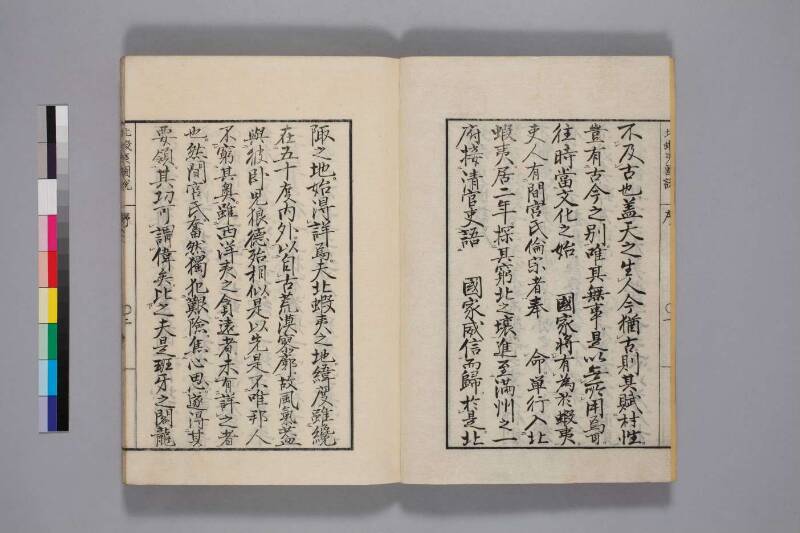 不及古也蓋天之生人今猶古則其賦材性
豈有古今之別唯其無事是以無所用焉耳
往時當文化之始　國家將有為於蝦夷
吏人有間宮氏倫宗者奉　命單行入北
蝦夷居二年探其窮北之壤進至滿州之一
府接清官吏語　國家威信而歸於是北
陬之地始得詳焉夫北蝦夷之地緯度雖纔
在五十度內外以自古荒漠寥廓故風氣蓋
與彼臥兒狼德殆相似是以先是不唯邦人
不窮其奧雖西洋夷之貪遠者未有詳之者
也然間宮氏奮然獨犯艱險焦心思遂得其
要領其功可謂偉矣比之夫是班牙之閣龍
北蝦夷圖說　序